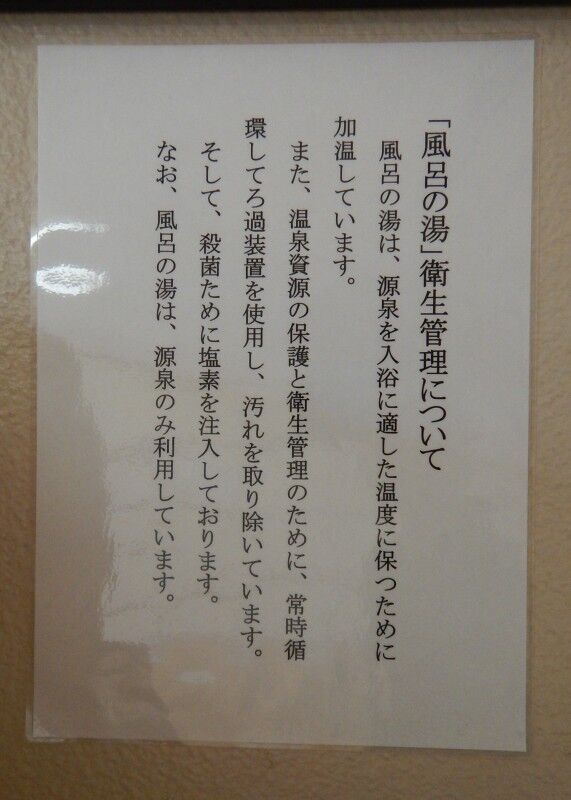 「風呂の湯」衛生管理について
風呂の湯は、源泉を入浴に適した温度に保つために
加温しています。
また、温泉資源の保護と衛生管理のために、常時循
環してろ過装置を使用し、汚れを取り除いています。
そして、殺菌ために塩素を注入しております。
なお、風呂の湯は、源泉のみ利用しています。